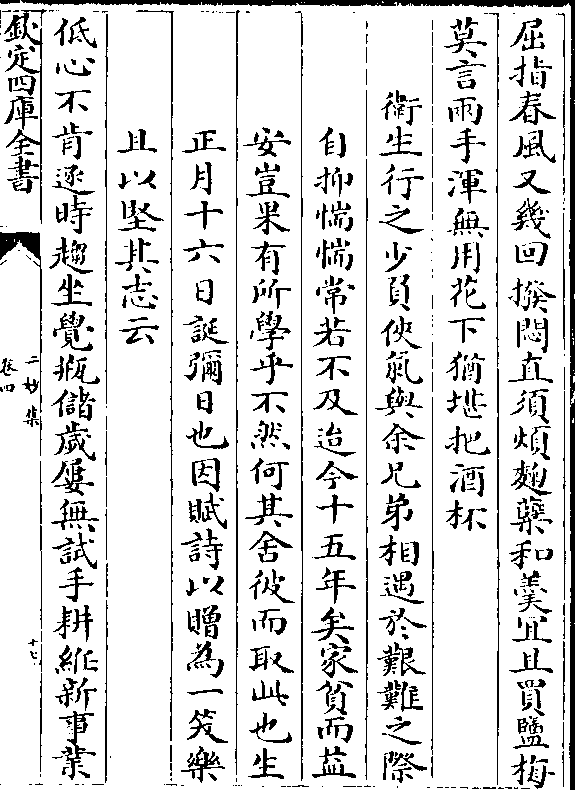 屈指春風又幾回撥悶直須煩麴蘖和羮宜且買鹽梅
莫言兩手渾無用花下猶堪把酒杯
衛生行之少負俠氣與余兄弟相遇於艱難之際
自抑惴惴常若不及迨今十五年矣家貧而益
安豈果有所學乎不然何其舍彼而取此也生
正月十六日誕彌日也因賦詩以贈為一笑樂
且以堅其志云
低心不肯逐時趨坐覺瓶儲歲屢無試手耕維新事業
欽定四庫全書
二妙集
卷四
十七